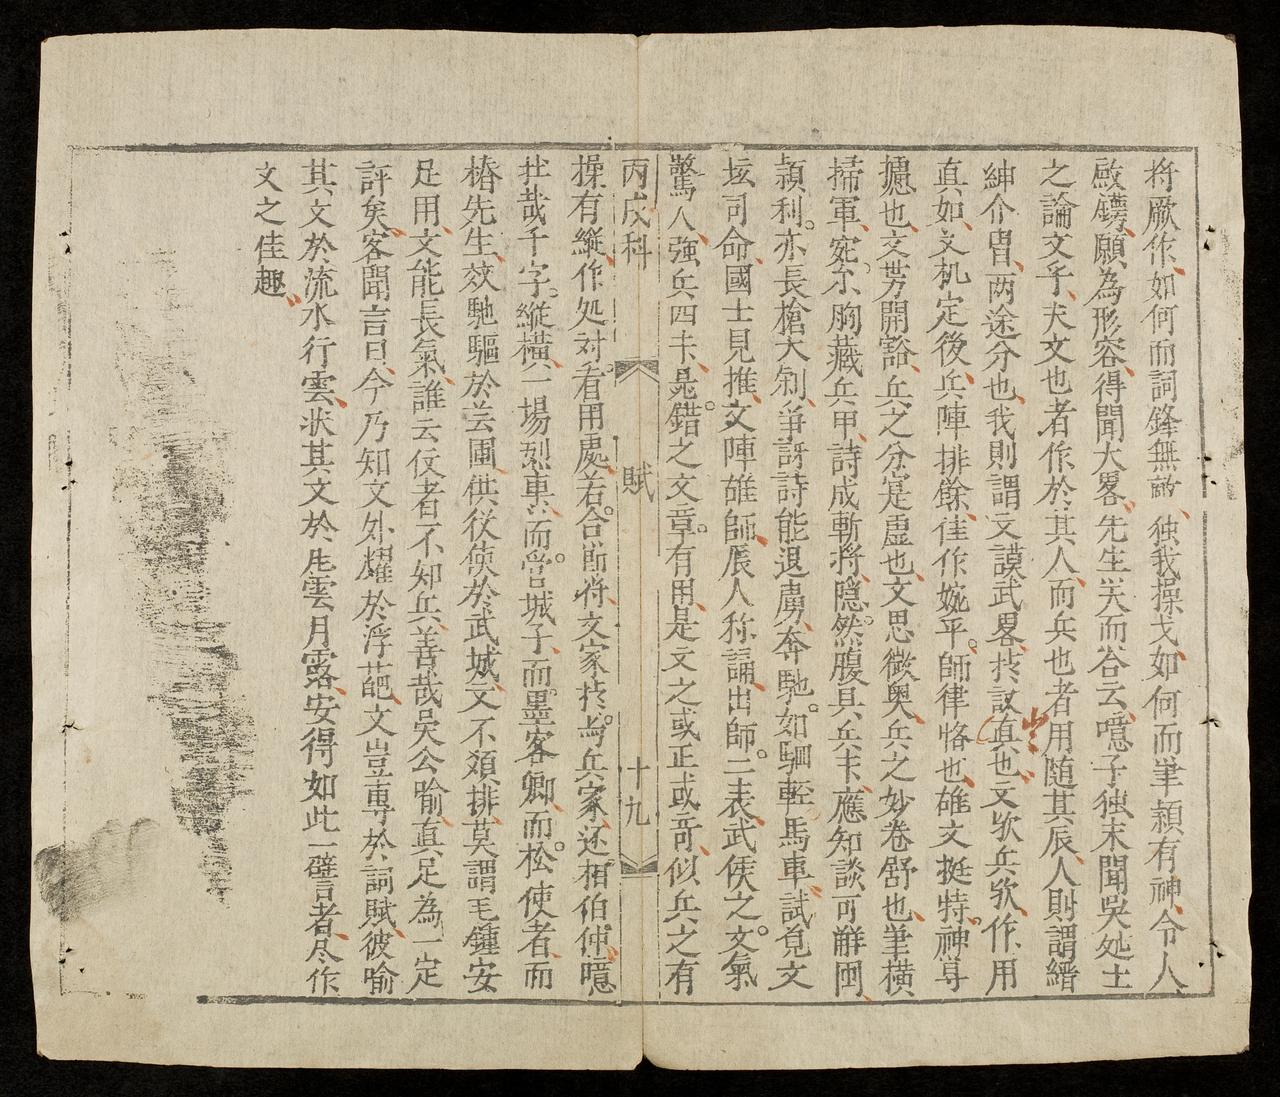 将厥作如何而詞鋒無敵独我操戈如何而筆頴有神令人
啟鐫願為形容得聞大畧先生笑而答云噫子独末聞吳処士
之論文乎夫文也者作於其人而兵也者用随其辰人則謂縉
紳介冑两途分也我則謂文謨武畧扵訍真也文欤兵欤作用
真如文机定後兵陣排餘佳作婉乎師律恪也雄文挺特神尋
攄也文芳開豁兵之分寔虚也文思微奥兵之妙卷舒也筆横
掃軍宛尔胸藏兵甲詩成斬将隠然腹具兵卡應知談可觧閩
頴利亦長槍大剣争訝詩能退虜奔馳如駟輊馬車試覓文
坛司命國士見推文陣雄師辰人称誦出師二表武侯之文氣
驚人強兵四卡晁錯之文章有用是文之或正或竒似兵之有
丙戌科
賦
十九
操有縱作処对看用處若合節将文家扵為兵家还相伯仲噫
壮哉千字縱横一場烈裏而営城子而墨客卿而松使者而
椿先生效馳驅於芸圃供従使於武城文不須排莫謂毛錘安
足用文能長氣誰云仗者不知兵善哉吳公喻真足為一定
評矣客聞言曰今乃知文外耀於浮葩文豈専於詞賦彼喻
其文於流水行雲状其文於月雲月露安得如此一譬言者尽作
文之佳趣